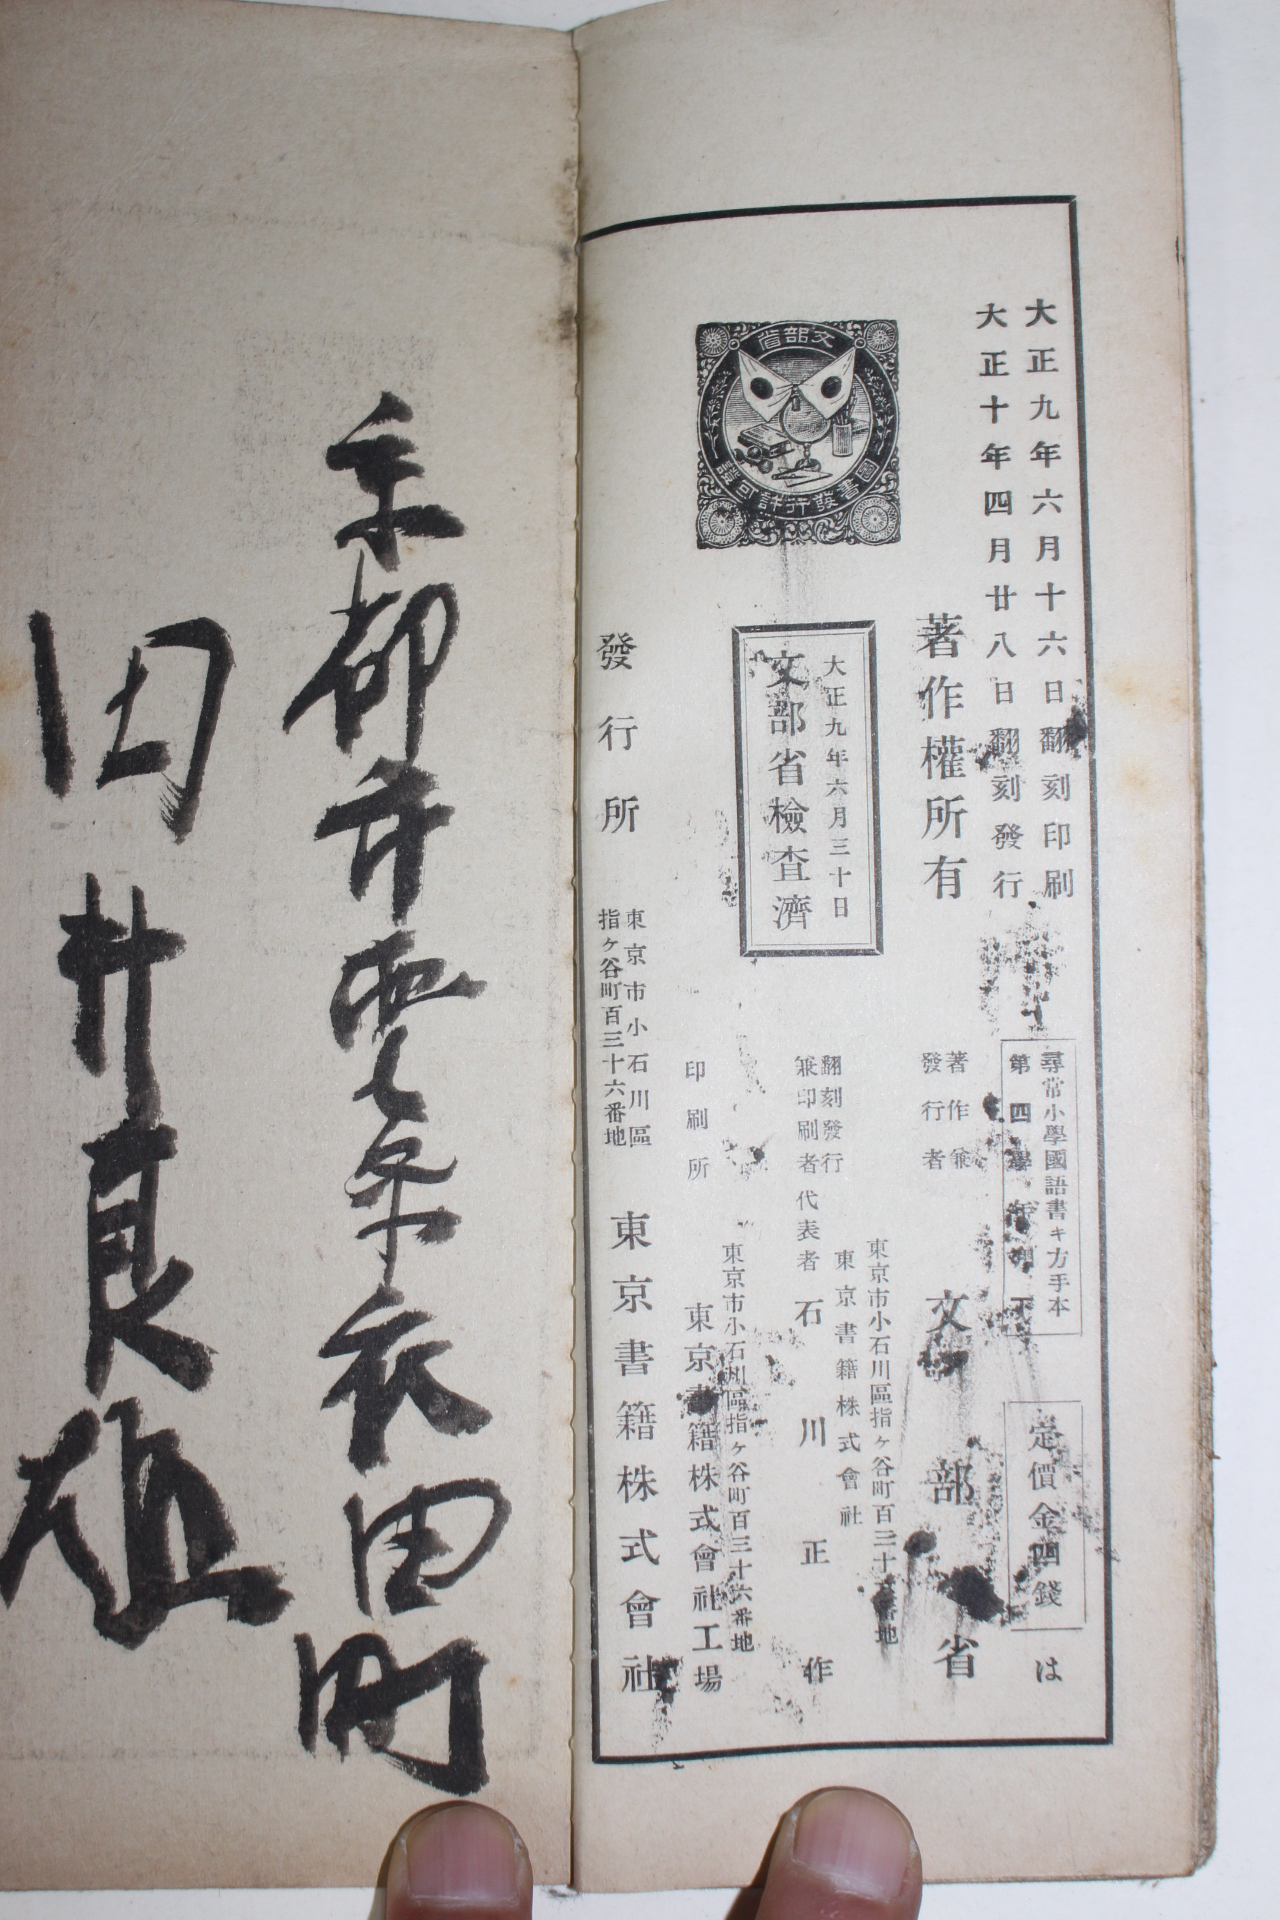 大正九年六月十六日翻刻印刷
大正十年四月廿八日翻刻發行
著作權所有
尋常小學國語書キ方手本
第四學年用下
定價金四錢
は
著作兼
發行者
文部省
大正九年六月三十日
文部省檢査濟
文部省
圖書發行許可證
東京市小石川區指ヶ谷町百三十六番地
東京書籍株式會社
翻刻發行
兼印刷者
代表者
石川正作
東京市小石川區指ヶ谷町百三十六番地
印刷所
東京書籍株式會社工場
發行所
東京市小石川區
指ヶ谷町百三十六番地
東京書籍株式會社
京都市
衣田町
田井良